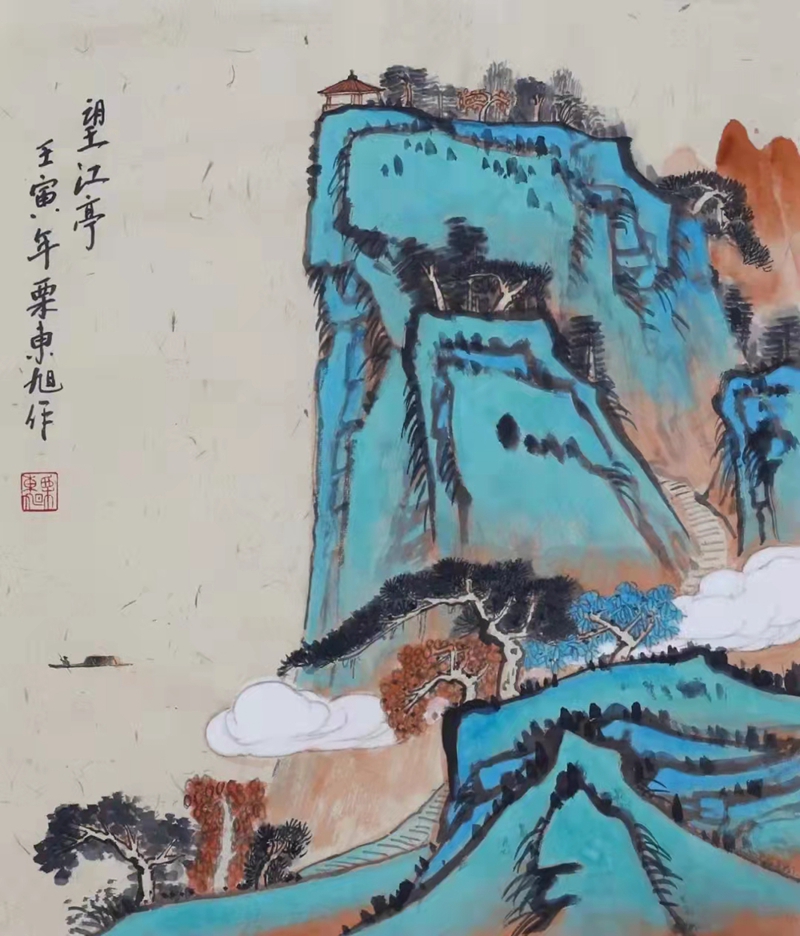 望江亭
壬寅年栗东旭作
栗东旭